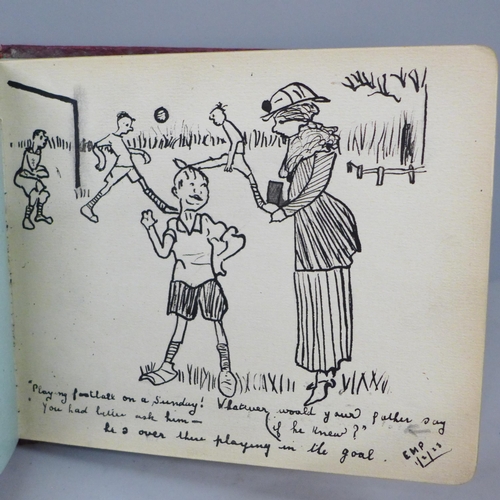 "Playing football on a Sunday! Whatever would your father say
if he knew?"
"You had better ask him —
he s over there playing in the goal.
EHP